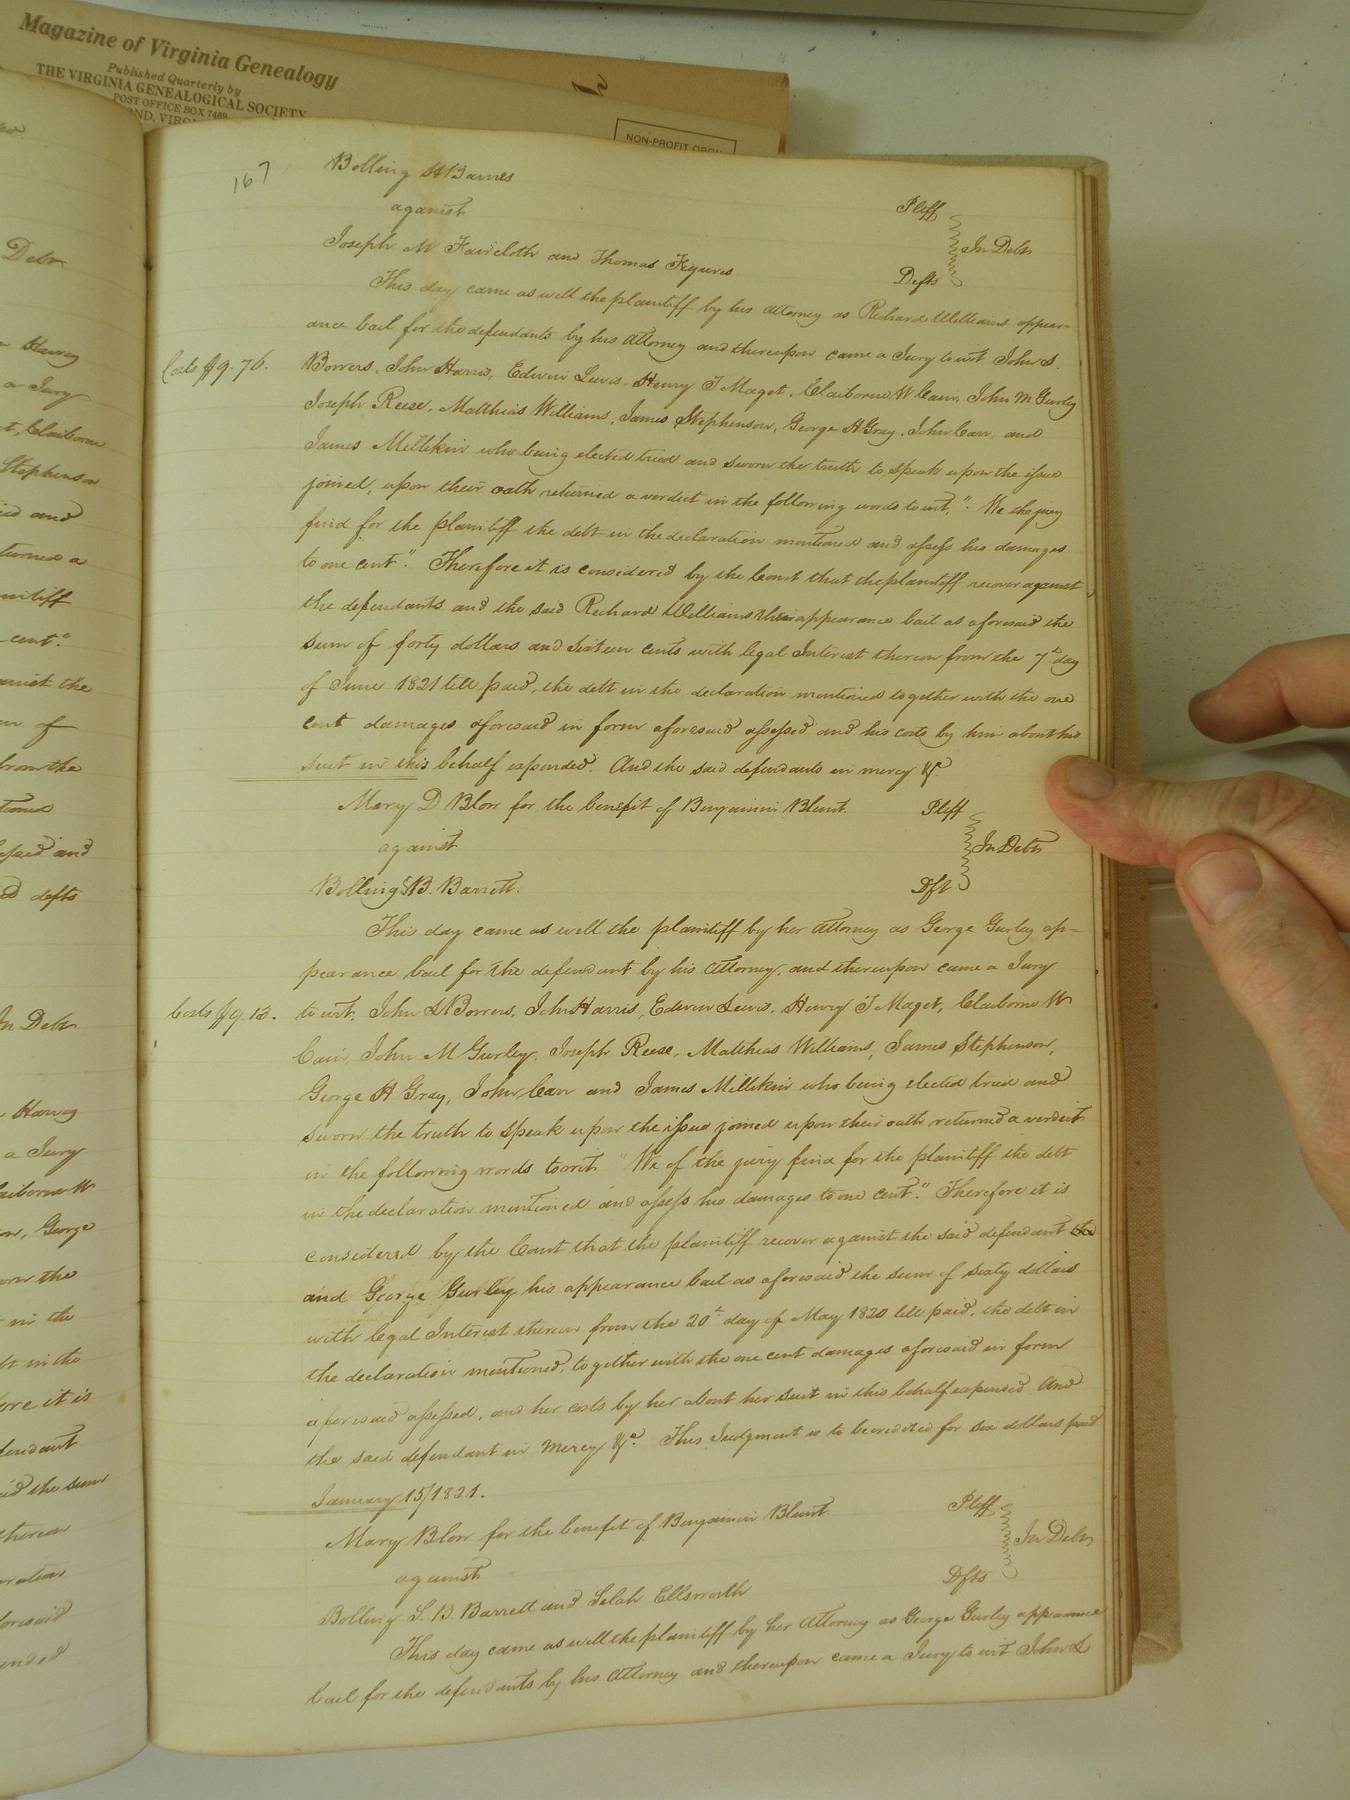 Magazine of Virginia Genealogy
Published Quarterly by
THE VIRGINIA GENEALOGICAL SOCIETY
POST OFFICE BOX 7469
NON-PROFIT ORG
167
Bolling H Barnes
Pltff
against
In Debt
Joseph M Faircloth and Thomas Figures
Defts
This day came as well the plaintiff by his attorney as Richard Williams appear-
ance bail for the defendants by his attorney and thereupon came a Jury to wit John S.
Costs $9.76.
Bowers, John Harris, Edwin Lewis, Henry T Maget, Claiborne W Cain, John M Gurley
Joseph Reese, Matthias Williams, James Stephenson, George H Gray, John Carr, and
James Millikin who being elected tried and sworn the truth to speak upon the issue
joined, upon their oath returned a verdict in the following words to wit, "We the jury
find for the plaintiff the debt in the declaration mentioned and assess his damages
to one cent". Therefore it is considered by the Court that the plaintiff recover against
the defendants and the said Richard Williams their appearance bail as aforesaid the
sum of forty dollars and sixteen cents with legal Interest thereon from the 7th day
of June 1821 till paid, the debt in the declaration mentioned together with the one
cent damages aforesaid in form aforesaid assessed and his costs by him about his
suit in this behalf expended. And the said defendants in mercy &c
Mary D Blow for the benefit of Benjamin Blunt.
Pltff
against
In Debt
Bolling S B. Barrett.
Dft
This day came as well the plaintiff by her attorney as Gerge Gurley ap-
pearance bail for the defendant by his attorney, and thereupon came a Jury
Costs $9.13.
to wit. John S Bowers, John Harris, Edwin Lewis, Henry T Maget, Claiborne W
Cain, John M Gurley, Joseph Reese, Matthias Williams, James Stephenson,
George H Gray, John Carr and James Millikin who being elected tried and
sworn the truth to speak upon the issue joined upon their oath returned a verdict
in the following words to wit "We of the jury find for the plaintiff the debt
in the declaration mentioned and assess his damages to one cent." Therefore it is
considered by the Court that the plaintiff recover against the said defendant
and George Gurley his appearance bail as aforesaid the sum of sixty dollars
with legal Interest thereon from the 20th day of May 1820 till paid, the debt in
the declaration mentioned, together with the one cent damages aforesaid in form
aforesaid assessed, and her costs by her about her suit in this behalf expended And
the said defendant in Mercy &c. This Judgment is to be credited for six dollars paid
January 15/1821.
Mary Blow for the benefit of Benjamin Blunt
Pltff
against
In Debt
Bolling S. B. Barrett and Selah Ellsworth
Dfts
This day came as well the plaintiff by her attorney as George Gurley appearance
bail for the defendants by his attorney and thereupon came a Jury to wit John S